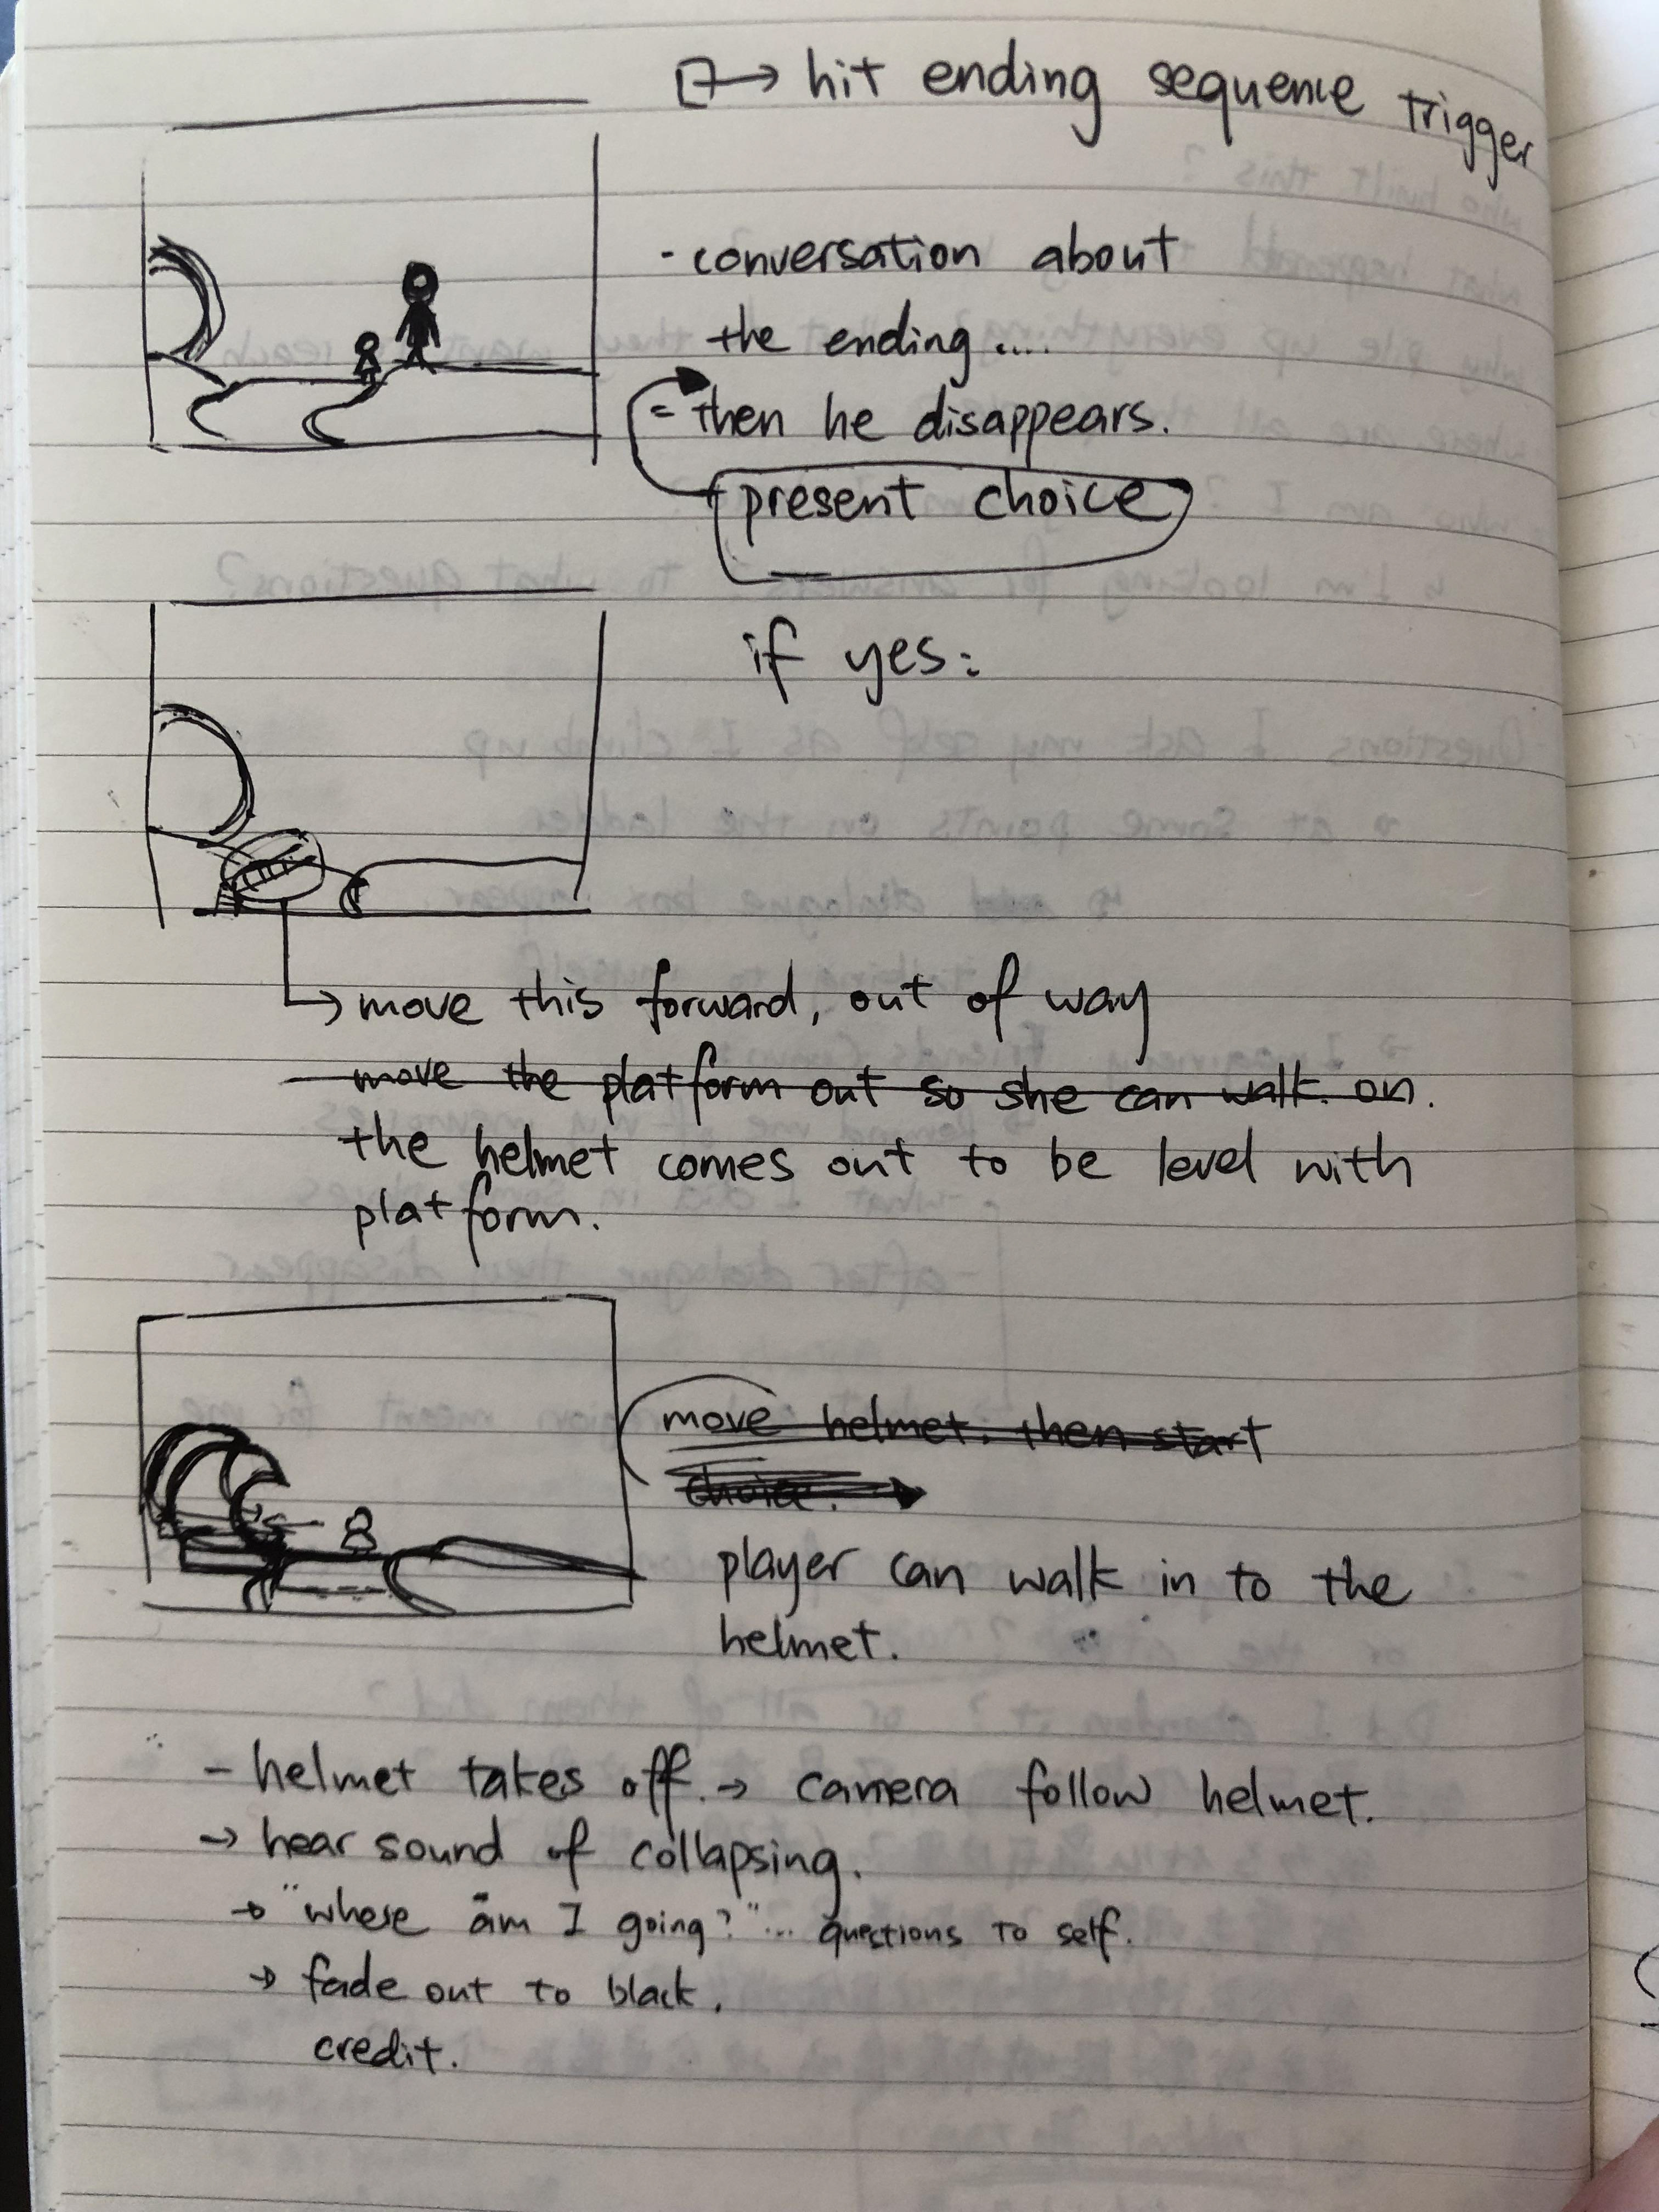 → hit ending sequence trigger
- conversation about
the ending ....
- then he disappears.
present choice
if yes:
→ move this forward, out of way
move the platform out so she can walk on.
the helmet comes out to be level with
platform.
move helmet. then start
choice.
player can walk in to the
helmet.
- helmet takes off. → camera follow helmet.
→ hear sound of collapsing.
→ "where am I going?"... questions to self.
→ fade out to black.
credit.